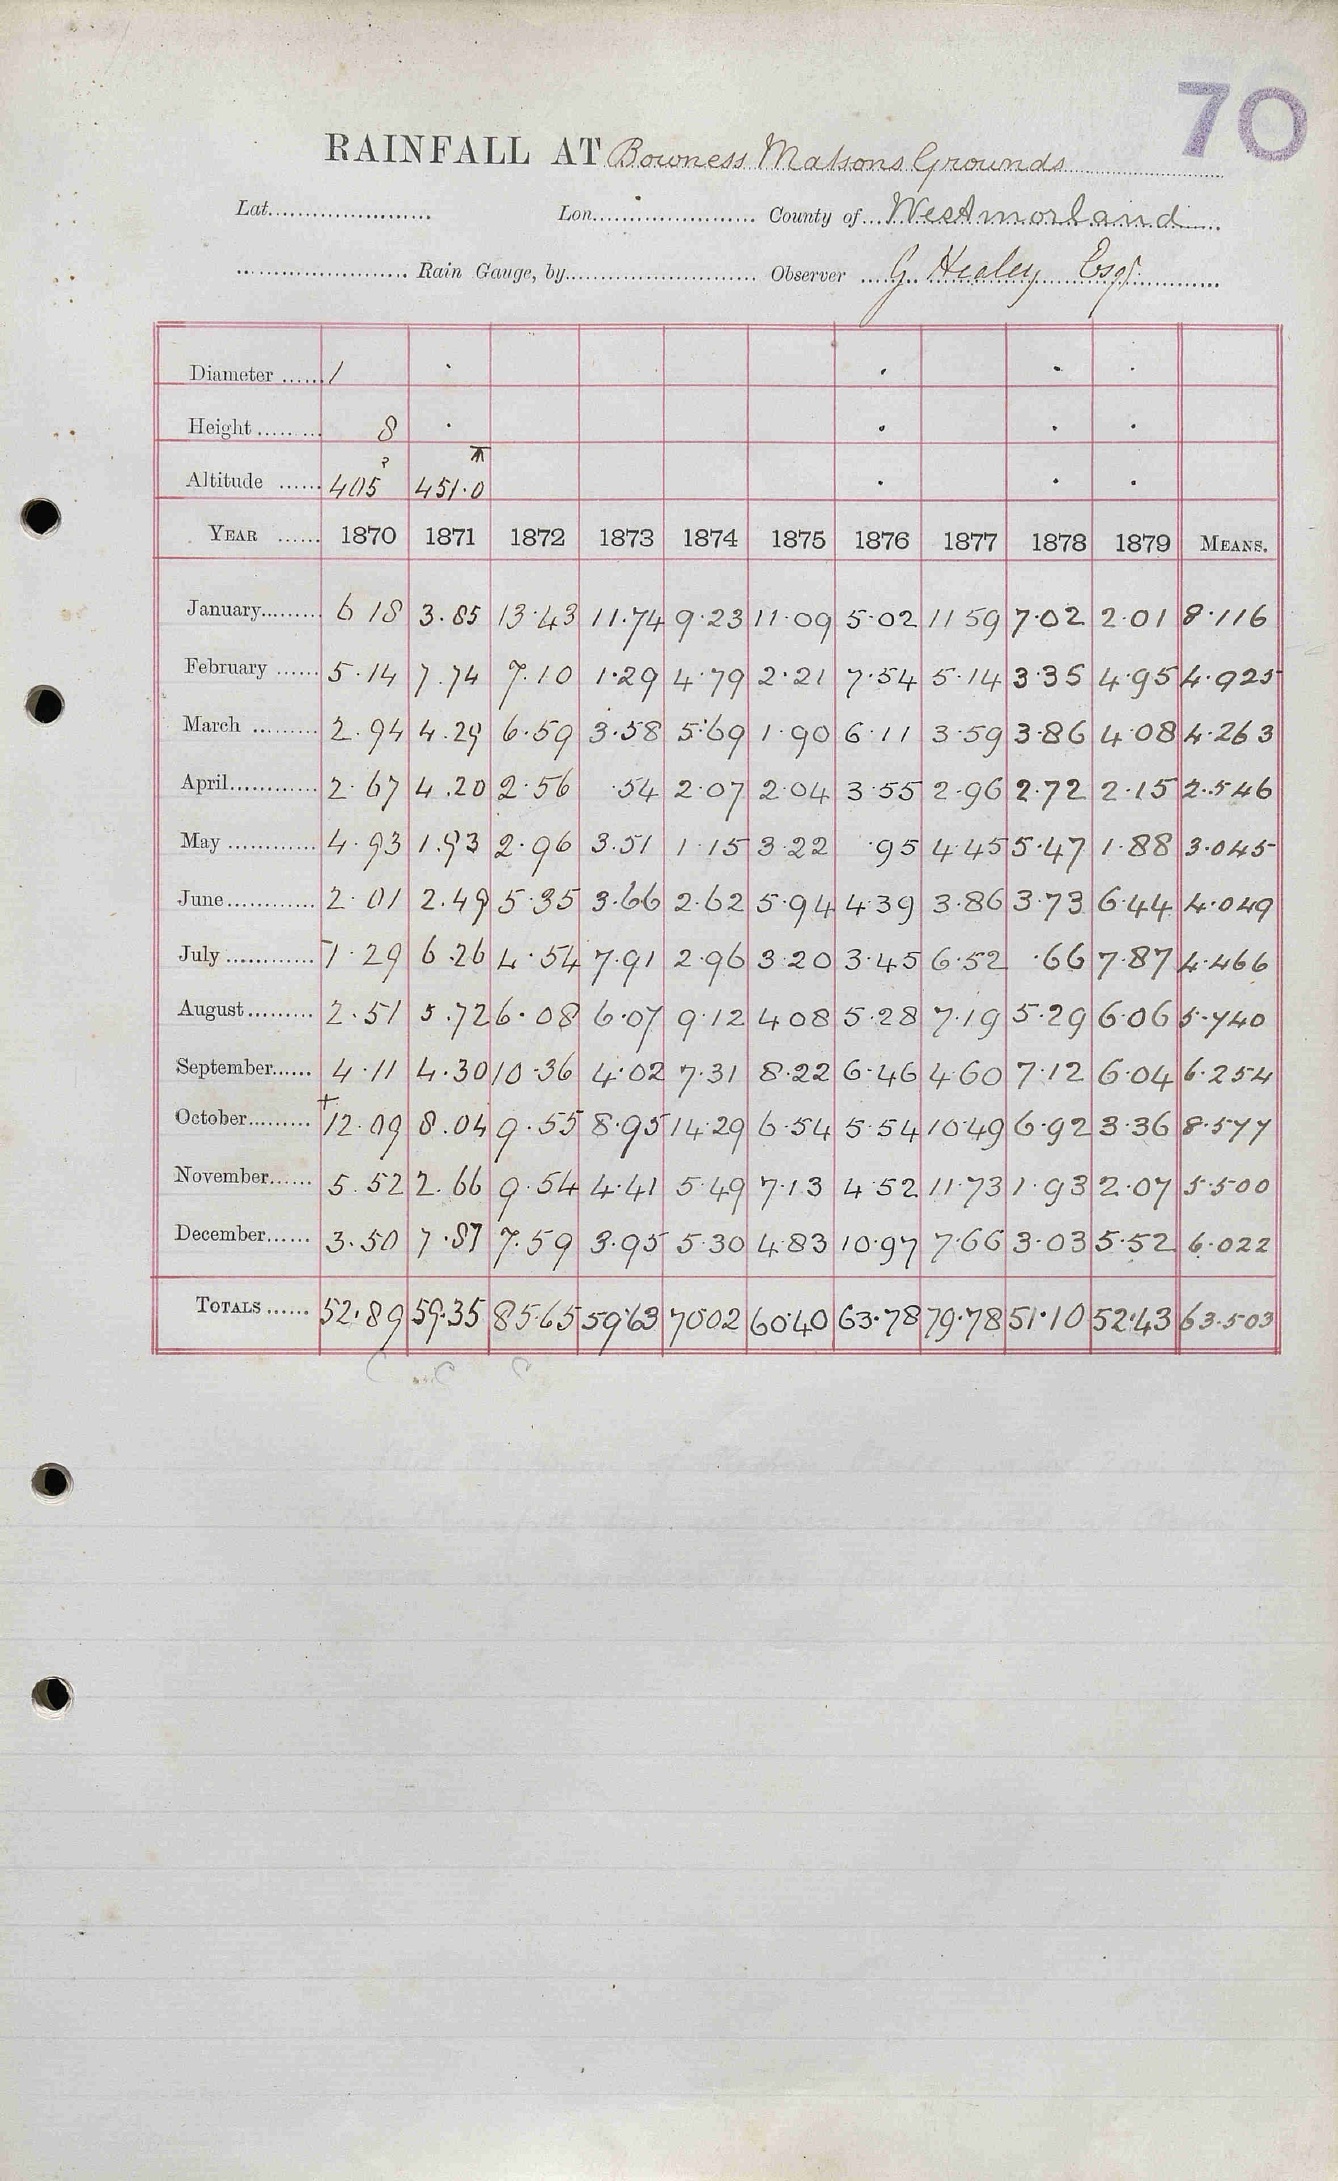 70
RAINFALL AT Bowness Matsons Grounds
Lat...................... Lon...................... County of Westmorland
...................... Rain Gauge, by...................... Observer G Healey Esqr.
Diameter ...... 1 · · · ·
Height ......... 8 · · · ·
Altitude ...... 405 ? 451·0 · · ·
YEAR ...... 1870 1871 1872 1873 1874 1875 1876 1877 1878 1879 MEANS.
January......... 6 18 3.85 13·43 11.74 9·23 11·09 5·02 11 59 7·02 2·01 8·116
February ...... 5·14 7.74 7.10 1·29 4·79 2·21 7·54 5·14 3·35 4·95 4·925
March ......... 2.94 4.29 6·59 3·58 5·69 1·90 6·11 3·59 3·86 4·08 4·263
April............ 2·67 4.20 2·56 ·54 2·07 2·04 3·55 2·96 2·72 2·15 2·546
May ............ 4·93 1.93 2·96 3·51 1·15 3·22 ·95 4·45 5·47 1·88 3·045
June............ 2·01 2.49 5·35 3·66 2·62 5·94 4·39 3·86 3·73 6·44 4·049
July ............ 1·29 6.26 4·54 7·91 2·96 3·20 3·45 6·52 ·66 7·87 4·466
August......... 2·51 5.72 6·08 6·07 9·12 4 08 5·28 7·19 5·29 6·06 5·740
September...... 4·11 4.30 10·36 4·02 7·31 8·22 6·46 4·60 7·12 6·04 6·254
October......... + 12·09 8.04 9·55 8·95 14·29 6·54 5·54 10·49 6·92 3·36 8·577
November...... 5.52 2.66 9·54 4·41 5·49 7·13 4·52 11·73 1·93 2·07 5·500
December...... 3.50 7.87 7·59 3·95 5·30 4·83 10·97 7·66 3·03 5·52 6·022
TOTALS ...... 52·89 59·35 85·65 59·63 70·02 60·40 63·78 79·78 51·10 52·43 63·503